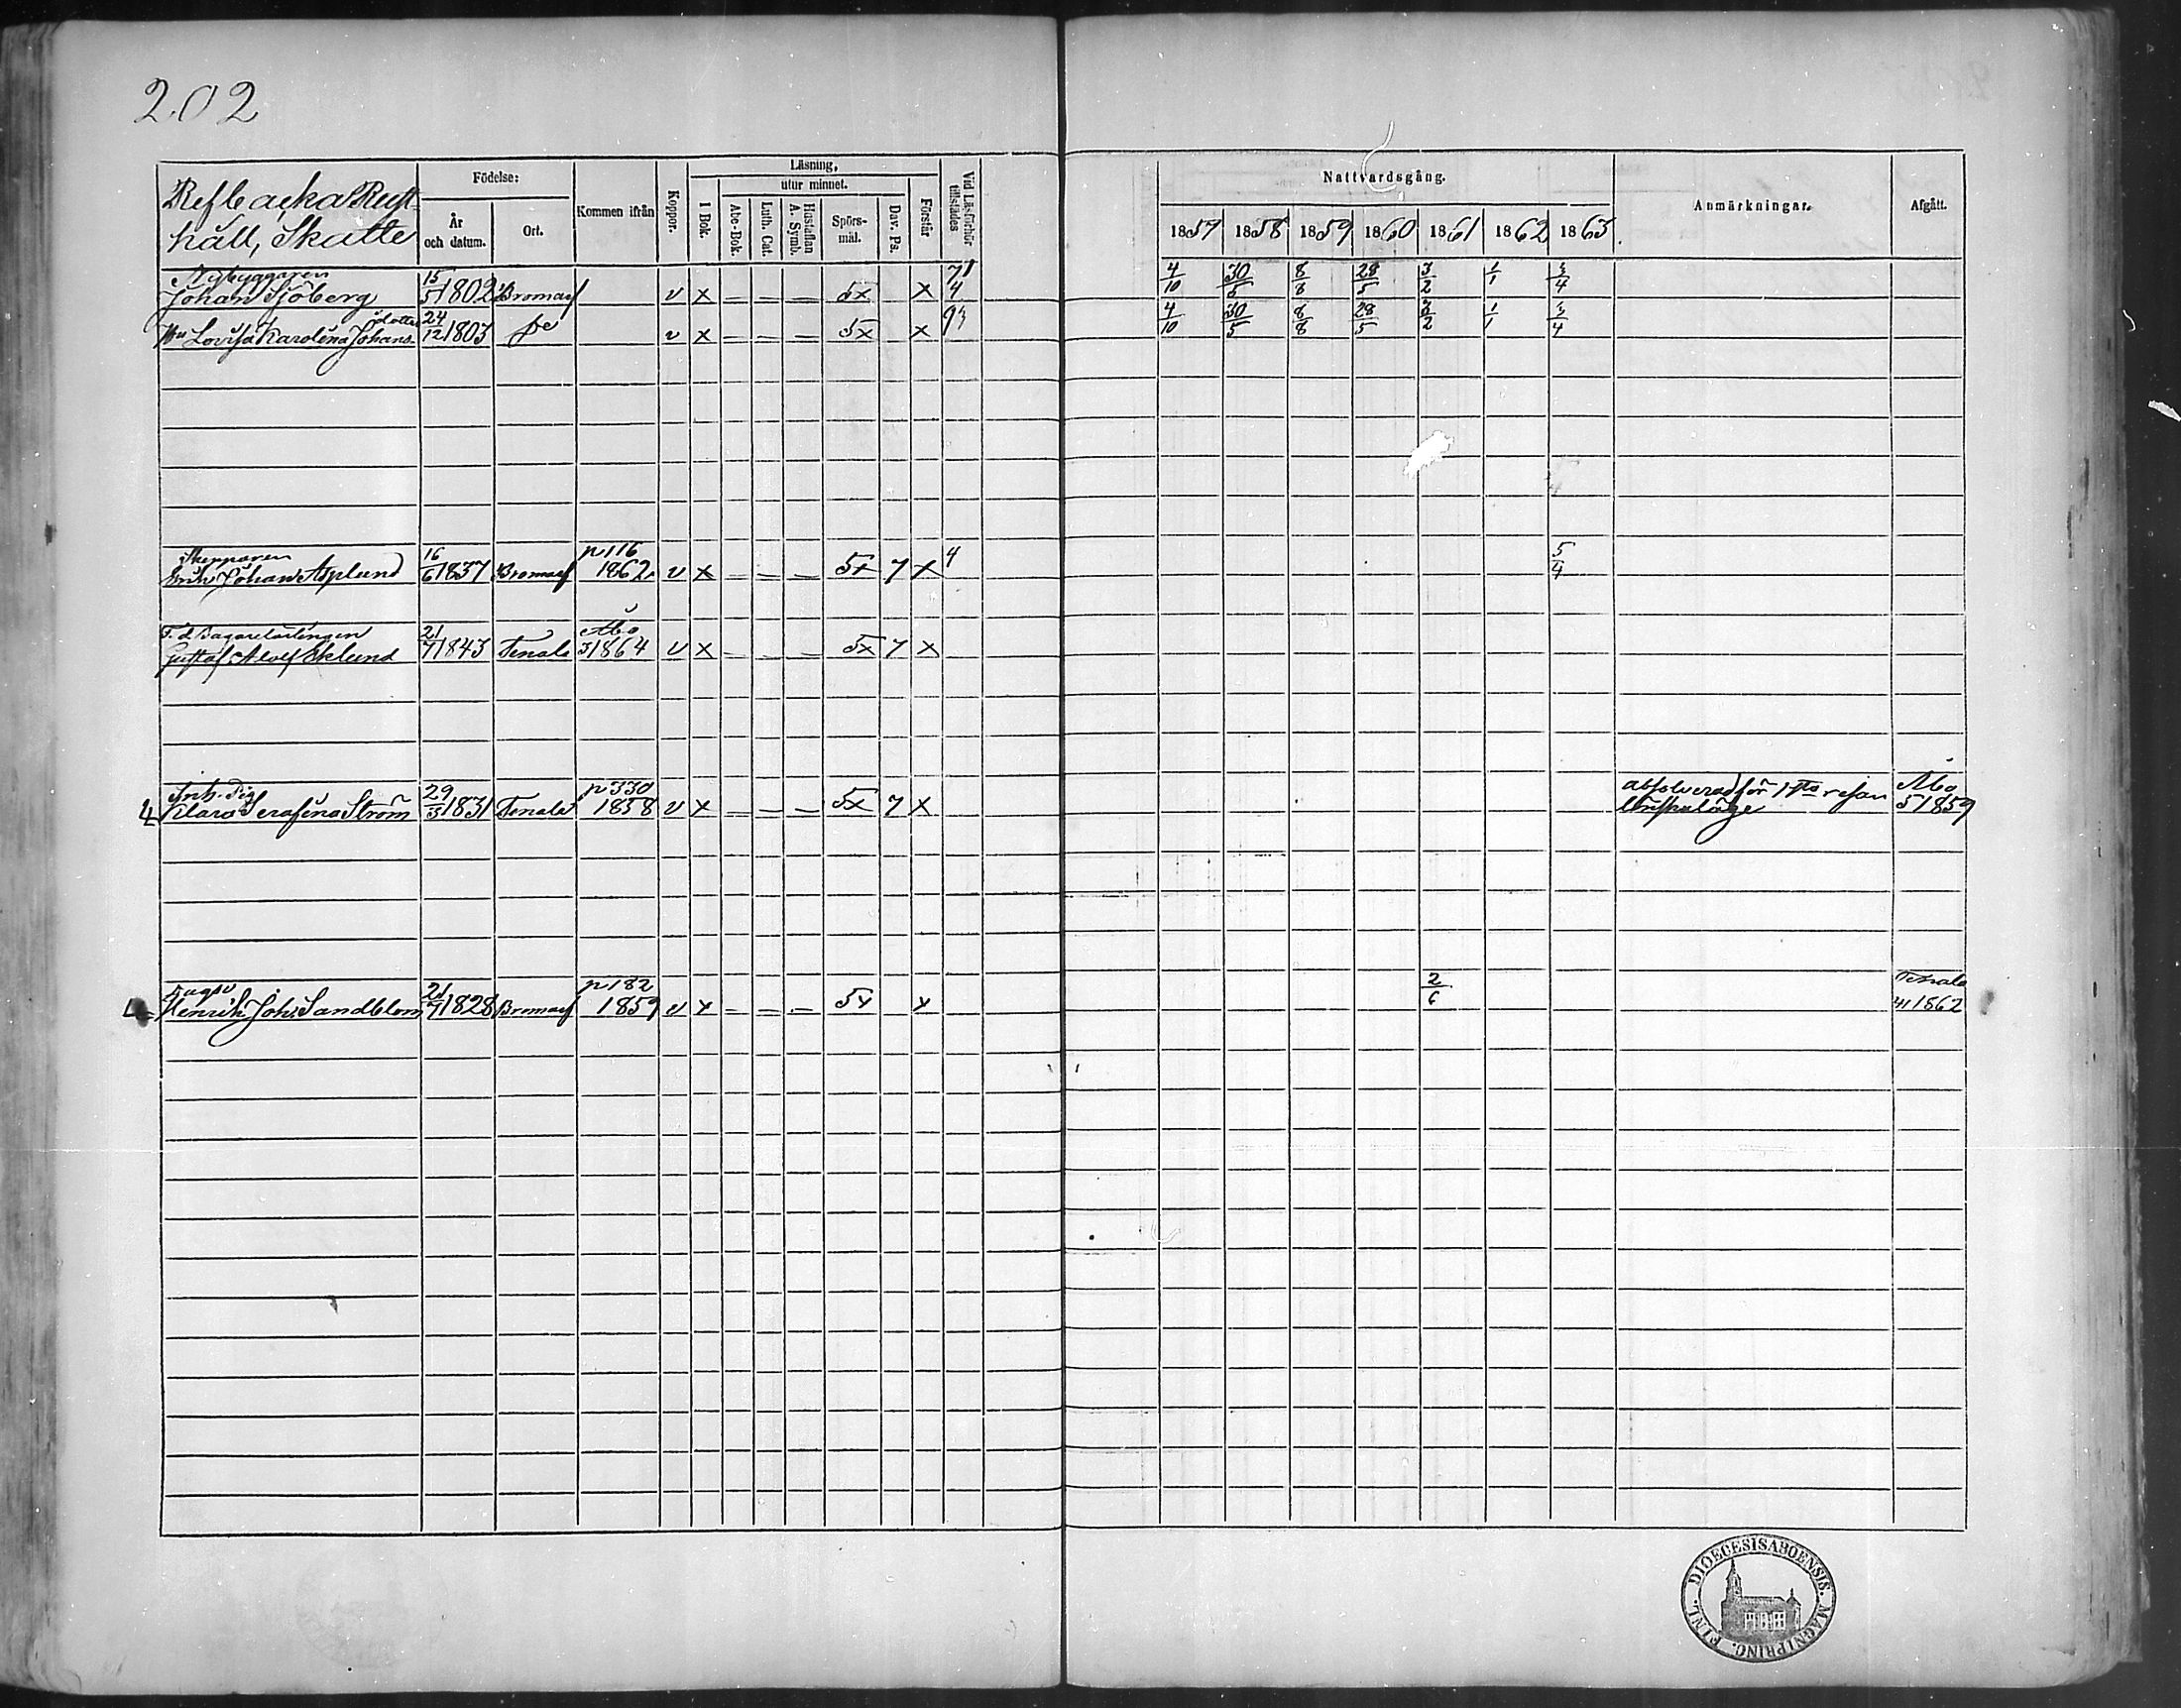 202
Refbacka Rust
håll, Skatte
Födelse:
År
och datum.
Ort.
Kommen ifrån
Koppor.
Läsning,
I Bok.
utur minnet.
Abc-Bok.
Luth. Cat.
Hustaflan
A. Symb.
Spörs-
mål.
Dav. Ps.
Förstår
Vid Läsförhör
tillstädes
Nattvardsgång.
1857 1858 1859 1860 1861 1862 1863.
Anmärkningar.
Afgått.
Nybyggaren
Johan Sjöberg 15/5 1802 Bromarf v x – – – 5x x 4/10 30/5 8/8 28/5 3/2 1/1 3/4
Hu Lovisa Karolina Johans dotter 24/12 1803 v x – – – 5x x 4/10 30/5 8/8 28/5 3/2 1/1 3/4
Skepparen
Erik Johan Asplund 16/6 1837 Bromarf p 116 1862 v x – – – 5x 7 x 4 5/4
F. d. Bagarelärlingen
Gustaf Adolf Eklund 21/7 1843 Tenala Åbo 1864 v x – – – 5x 7 x
Inh. Pig
Klara Serafina Ström 29/3 1831 Tenala p 330 1858 v x – – – 5x 7 x absolverad för 1sta resan Åbo
lönskaläge 5 1859
Henrik Johs Sandblom 21/7 1828 Bromarf p 182 1859 v x – – – 5x x 2/6 Tenala
1862
DIOECESIS ABOENSIS. MAGNI PRINC. FINL.